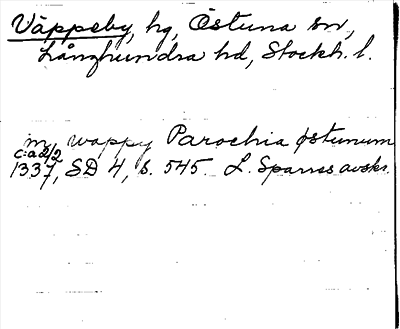 Väppeby, hg, Östuna sn,
Långhundra hd, Stockh. l.
in wappy Parochia østunum
c:a 2/2
1337, SD 4, s. 545. L. Sparres avskr.